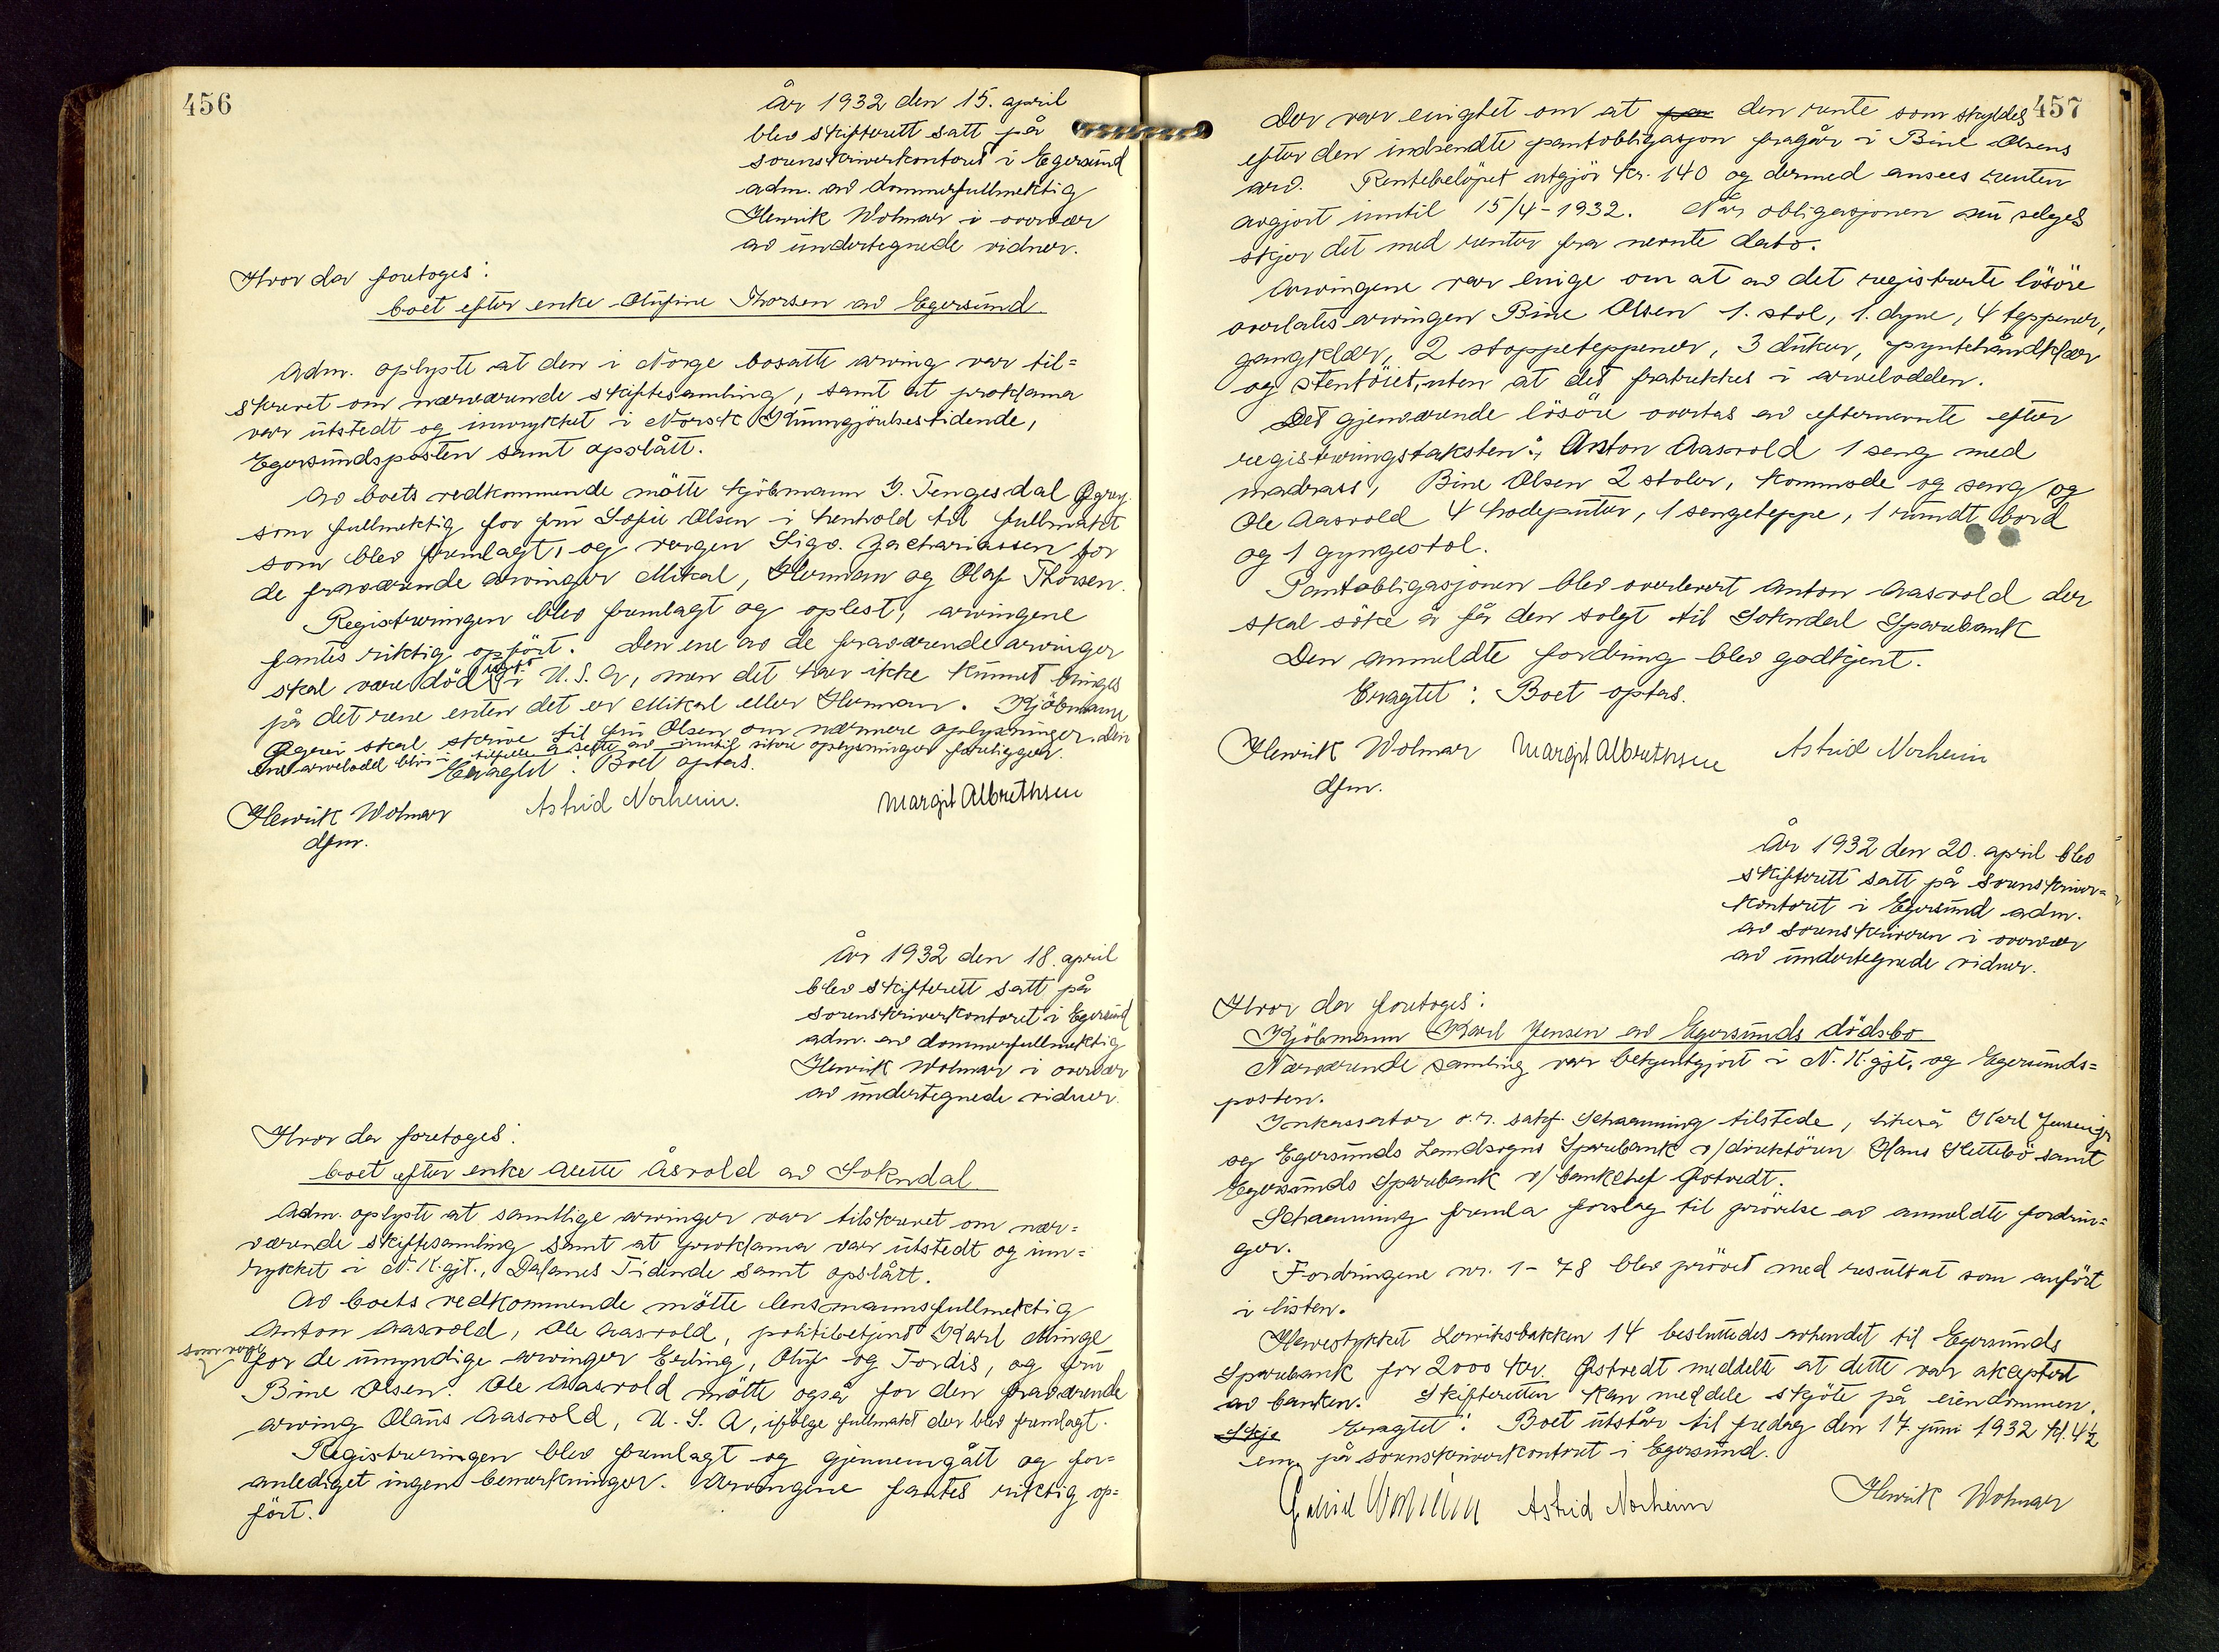 456
År 1932 den 15. april
blev skifterett satt på
sorenskriverkontoret i Egersund
adm. av dommerfullmektig
Henrik Wolmar i overvær
av undertegnede vidner.
Hvor der foretoges:
boet efter enke Olufine Thorsen av Egersund.
Adm. oplyste at den i Norge bosatte arving var til=
skrevet om nærværende skiftesamling, samt at proklama
var utstedt og innrykket i Norsk Kunngjörelsestidende,
Egersundsposten samt opslått.
Av boets vedkommende mötte kjöbmann G. Tengesdal
som fullmektig for fru Sofie Olsen i henhold til fullmakt
som blev fremlagt, og vergen Sigv. Zachariassen for
de fraværende arvinger Mikal, Herman og Olaf Thorsen.
Registreringen blev fremlagt og oplest, arvingene
fantes riktig opfört. Den ene av de fraværende arvinger
skal være död i U.S.A, men det har ikke kunnet bringes
på det rene enten det er Mikal eller Herman. Kjöbmann
skal skrive til fru Olsen om nærmere oplysninger. Den
ene arvelodd blir i tilfelle å sette av inntil sikre oplysninger foreligger.
Eragtet: Boet optas.
Henrik Wolmar Astrid Norheim. Margit Albrethsen
dfm.
År 1932 den 18. april
blev skifterett satt på
sorenskriverkontoret i Egersund
adm. av dommerfullmektig
Henrik Wolmar i overvær
av undertegnede vidner.
Hvor der foretoges:
boet efter enke Aette Åsvold av Sokndal
Adm. oplyste at samtlige arvinger var tilskrevet om nær=
værende skiftesamling samt at proklama var utstedt og inn=
rykket i N. K.gjt., Dalanes Tidende samt opslått.
Av boets vedkommende mötte lensmannsfullmektig
Anton Aasvold, Ole Aasvold, politibetjent Karl Minge
som verge
for de umyndige arvinger Erling, Oluf og Tordis, og fru
Bine Olsen. Ole Aasvold mötte også for den fraværende
arving Olaus Aasvold, U.S.A, ifölge fullmakt der blev fremlagt.
Registreringen blev fremlagt og gjennemgått og for=
anlediget ingen bemerkninger. Arvingene fantes riktig op=
fört.
457
Der var enighet om at den rente som skyldes
efter den indsendte pantobligasjon fragår i Bine Olsens
arv. Rentebelöpet utgjör kr. 140 og dermed ansees renten
avgjort inntil 15/4-1932. Når obligasjonen nu selges
skjer det med renter fra nevnte dato.
Arvingene var enige om at av det registrerte lösöre
overlates arvingen Bine Olsen 1. stol, 1. dyne, 4 teppener,
gangklær, 2 stoppeteppener, 3 duker, pyntehåndklær
og stentöiet, uten at det fratrekkes i arvelodden.
Det gjenværende lösöre overtas av efternevnte efter
registreringstaksten: Anton Aasvold 1 seng med
madrass, Bine Olsen 2 stoler, kommode og seng og
Ole Aasvold 4 hodeputer, 1 sengeteppe, 1 rundt bord
og 1 gyngestol.
Pantobligasjonen blev overlevert Anton Aasvold der
skal söke å få den solgt til Sokndal Sparebank
Den anmeldte fordring blev godkjent.
Eragtet: Boet optas.
Henrik Wolmar Margit Albrethsen Astrid Norheim
dfm.
År 1932 den 20. april blev
skifterett satt på sorenskriver=
kontoret i Egersund adm.
av sorenskriveren i overvær
av undertegnede vidner.
Hvor der foretoges:
Kjöbmann Karl Jensen av Egersunds dödsbo
Nærværende samling var bekjentgjort i N.K.gjt. og Egersunds=
posten.
Inkassator o.r. sakf. Schanning tilstede, likeså Karl Jensen jr
og Egersunds Landsogns Sparebank v/direktören Hans Hettebö samt
Egersunds Sparebank v/bankchef Østvedt.
Schanning fremla forslag til prövelse av anmeldte fordrin=
ger.
Fordringene nr. 1-78 blev prövet med resultat som anfört
i listen.
Lerviksbakken 14 besluttedes avhendet til Egersunds
Sparebank for 2000 kr. Østvedt meddelte at dette var akseptert
av banken. Skifteretten kan meddele skjöte på eiendommen.
Skje Eragtet: Boet utstår til fredag den 17. juni 1932 kl. 4½
em. på sorenskriverkontoret i Egersund.
Astrid Norheim Henrik Wolmar